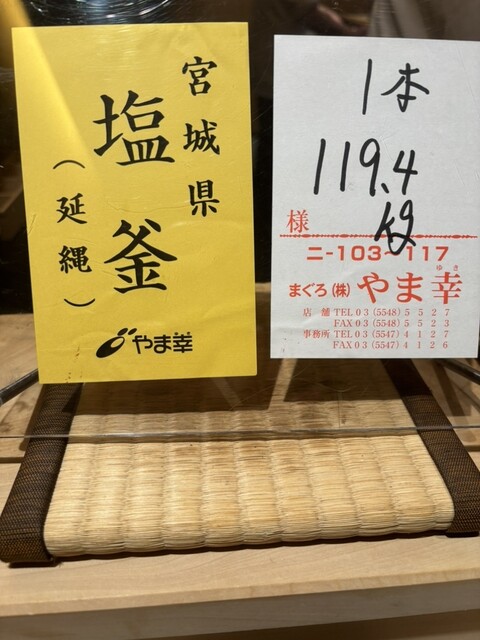 宮城県
塩釜
（延縄）
やま幸
1本
119.4
kg
様
ニ-103~117
まぐろ(株)やま幸
ゆき
店舗 TEL 03(5548)5527
FAX 03(5548)5523
事務所 TEL 03(5547)4127
FAX 03(5547)4126